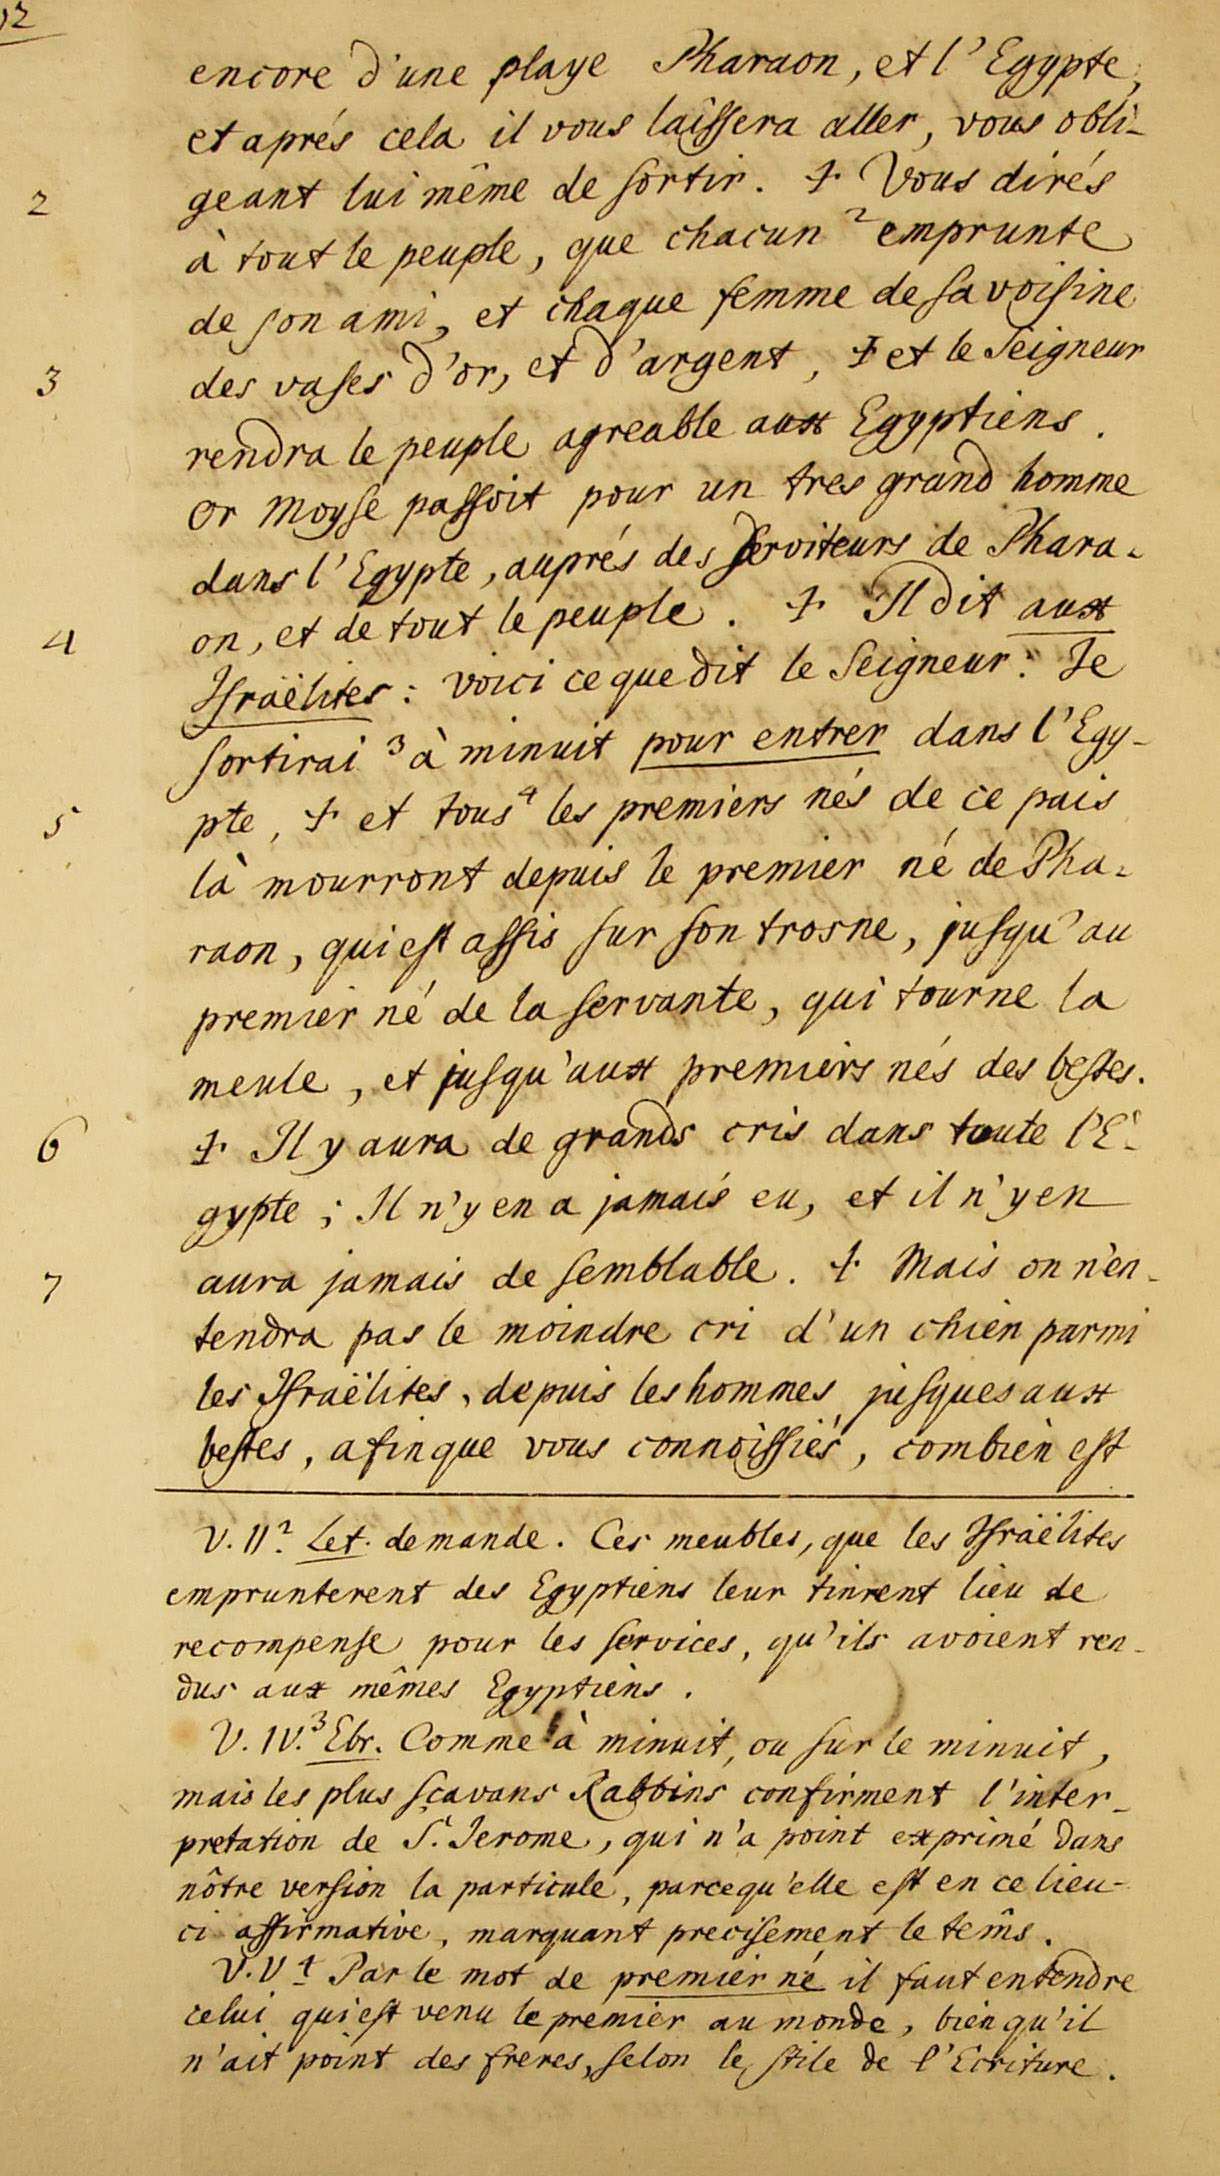 12
encore d'une playe Pharaon, et l'Egypte,
et aprés cela il vous laissera aller, vous obli-
2 geant lui même de sortir. ☩ Vous dirés
à tout le peuple, que chacun ² emprunte
de son ami, et chaque femme de sa voisine
3 des vases d'or, et d'argent, ☩ et le Seigneur
rendra le peuple agreable aux Egyptiens.
Or Moyse passoit pour un tres grand homme
dans l'Egypte, auprés des serviteurs de Phara-
4 on, et de tout le peuple. ☩ Il dit aux
Israëlites : voici ce que dit le Seigneur : Je
sortirai ³ à minuit pour entrer dans l'Egy-
5 pte, ☩ et tous ⁴ les premiers nés de ce pais
là mourront depuis le premier né de Pha-
raon, qui est assis sur son trosne, jusqu'au
premier né de la servante, qui tourne la
meule, et jusqu'aux premiers nés des bestes.
6 ☩ Il y aura de grands cris dans toute l'E-
gypte ; Il n'y en a jamais eu, et il n'y en
7 aura jamais de semblable. ☩ Mais on n'en-
tendra pas le moindre cri d'un chien parmi
les Israëlites, depuis les hommes jusques aux
bestes, afin que vous connoissiés, combien est
V. II ² Let. demande. Ces meubles, que les Israëlites
emprunterent des Egyptiens leur tinrent lieu de
recompense pour les services, qu'ils avoient ren-
dus aux mêmes Egyptiens.
V. IV. ³ Ebr. Comme à minuit, ou sur le minuit,
mais les plus sçavans Rabbins confirment l'inter-
pretation de S.t Jerome, qui n'a point exprimé dans
nôtre version la particule, parcequ'elle est en ce lieu-
ci affirmative, marquant precisement le tem̂s.
V. V ⁴ Par le mot de premier né il faut entendre
celui qui est venu le premier au monde, bien qu'il
n'ait point des freres, selon le stile de l'Ecriture.